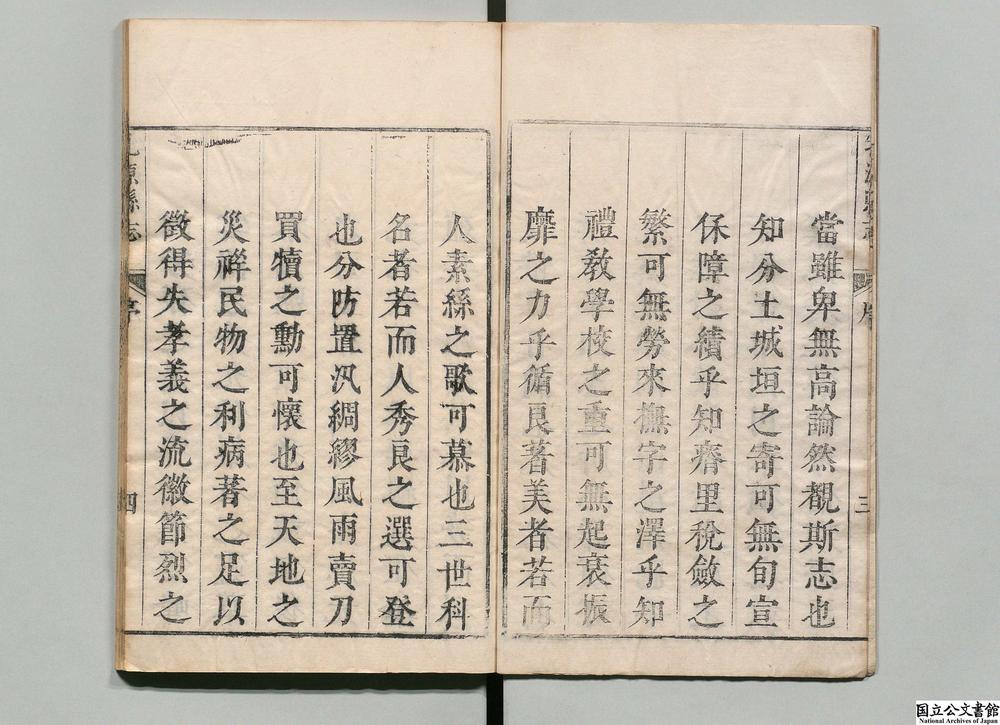 當雖卑無高論然覩斯志也
知分土城垣之寄可無旬宣
保障之績乎知瘠里稅斂之
繁可無勞來撫字之澤乎知
禮教學校之重可無起衰振
靡之力乎循良著美者若而
三
人素絲之歌可慕也三世科
名者若而人秀良之選可登
也分防置汛綢繆風雨賣刀
買犢之勳可懷也至天地之
災祥民物之利病著之足以
徵得失孝義之流徽節烈之
源縣志
序
四
国立公文書館
National Archives of Japan